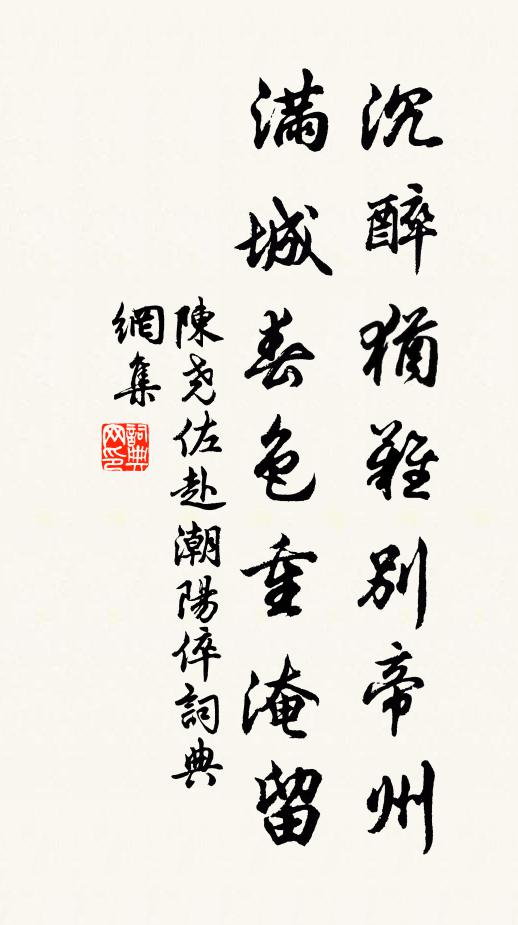 沉醉猶難別帝州
滿城春色重淹留
陳堯佐赴潮陽倅詞典
網集
詞典
网印